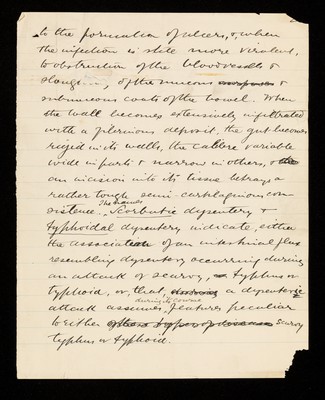 to the formation of ulcers, &, when
the infection is still more virulent,
to obstruction of the bloodvessels &
slough, of the mucous &
submucous coats of the bowel. When
the wall becomes extensively infiltrated
with a fibrinous deposit, the gut becomes
rigid in its walls, the calibre variable
wide in parts & narrow in others, & the
an incision into its tissue betrays a
rather tough semi-cartilaginous con
sistence. The names Scorbutic dysentery &
typhoidal dysentery indicate, either
the association of an intestinal flux
resembling dysentery occurring during
an attack of scurvy, typhus or
typhoid, or, that, a dysenteric
attack assumes, during its course features peculiar
to either scurvy
typhus or typhoid.